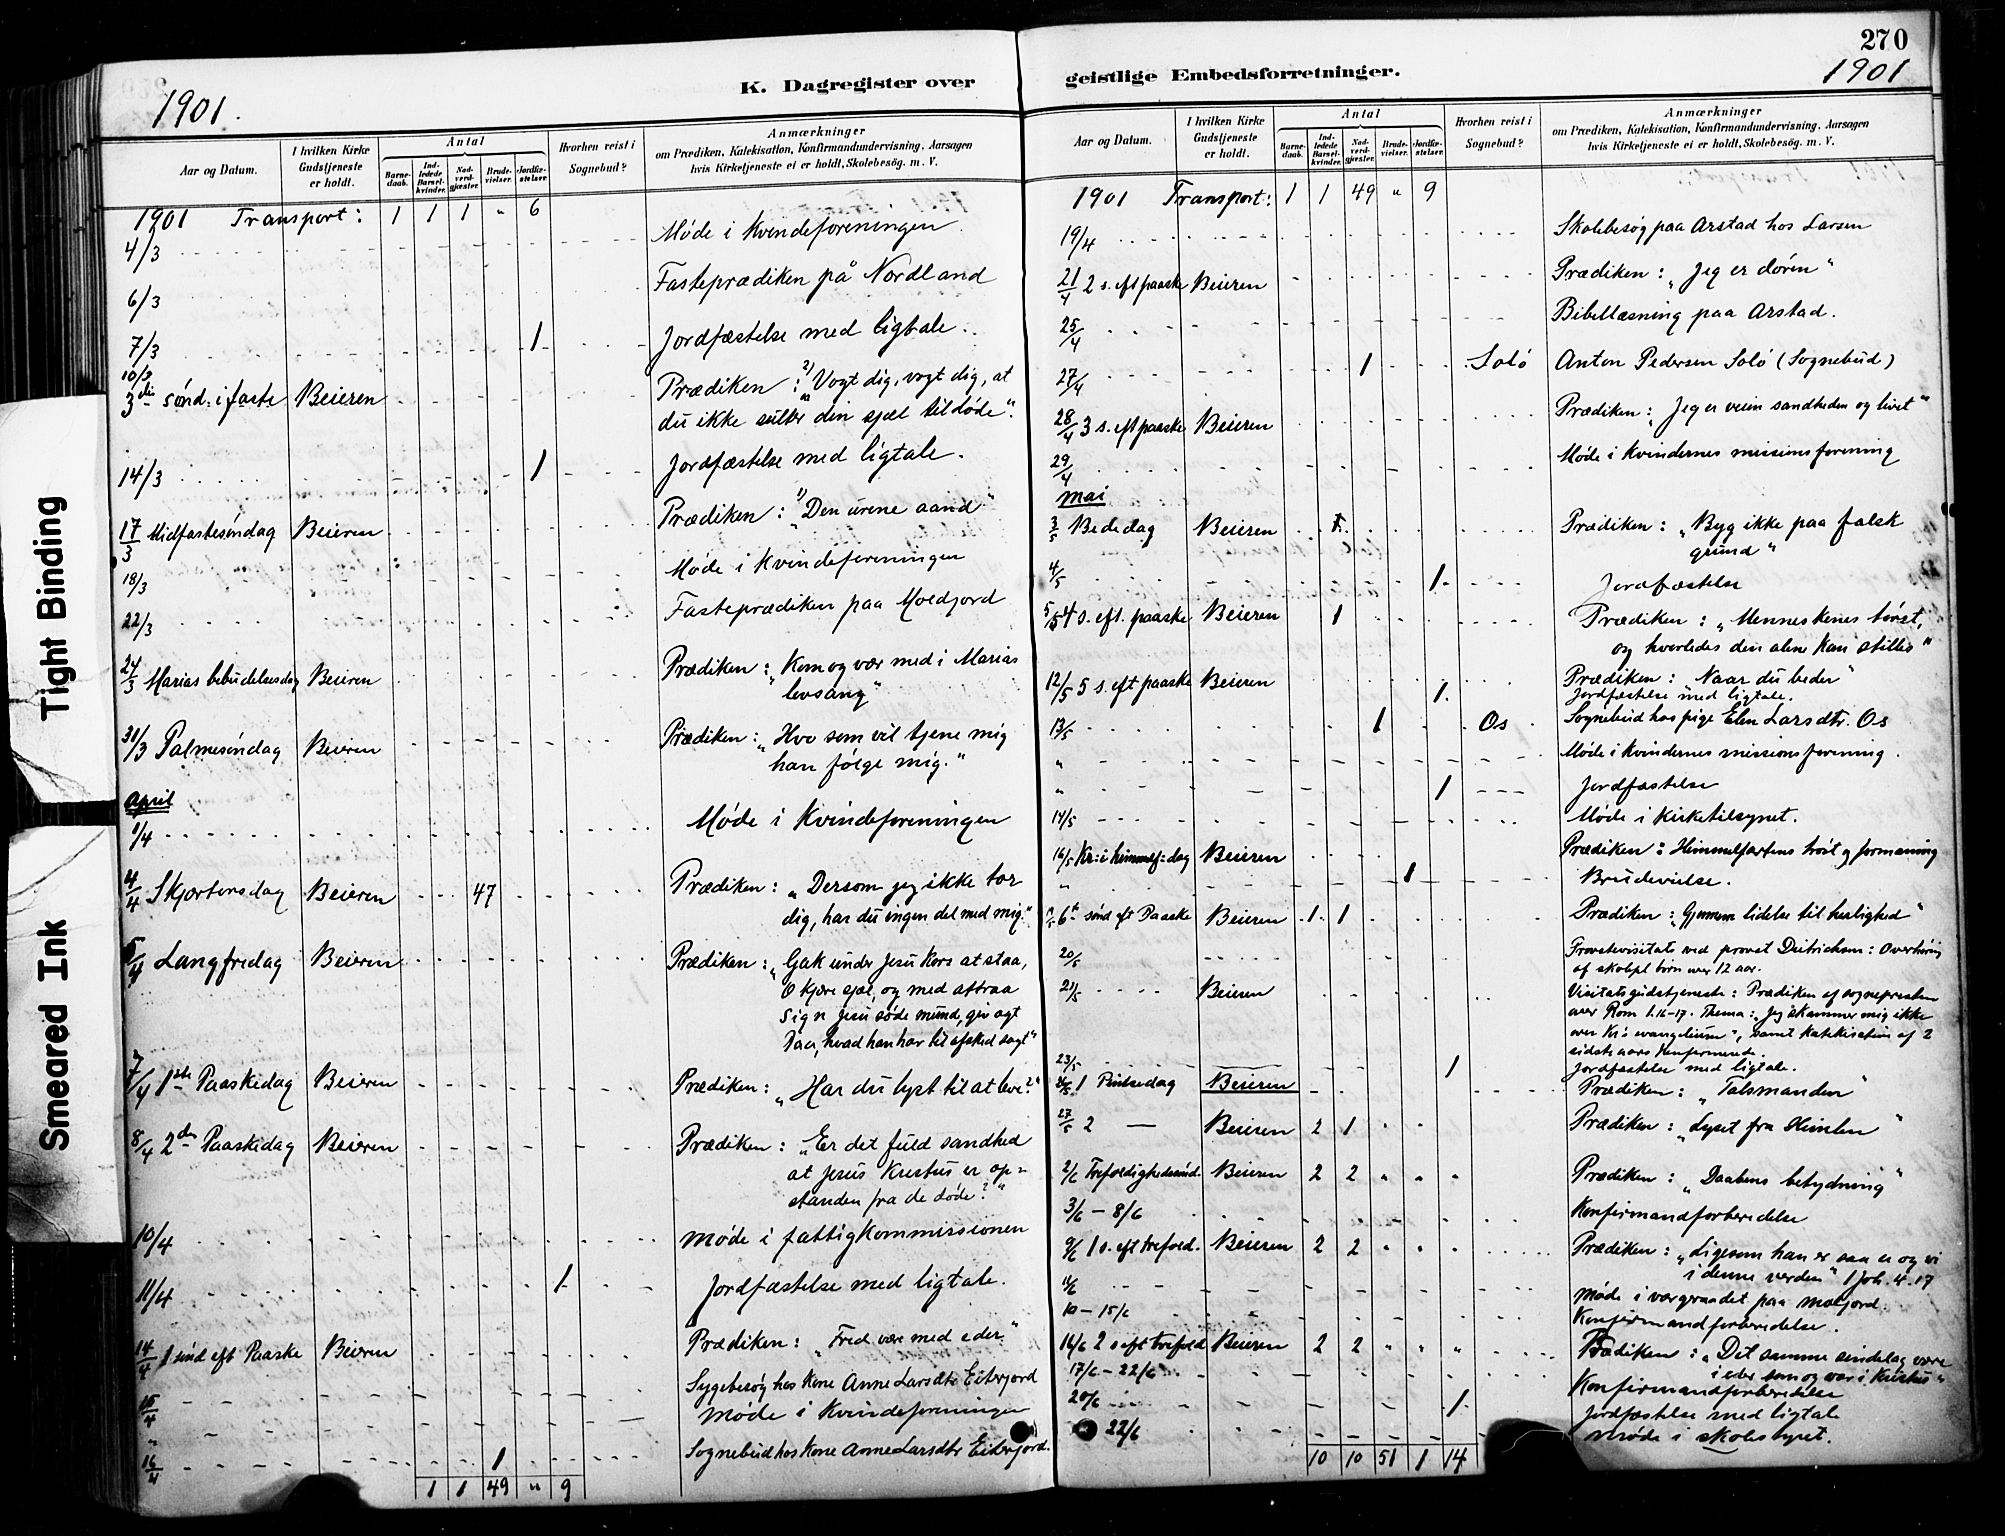 270
K. Dagregister over geistlige Embedsforretninger.
1901.
1901
Aar og Datum.
I hvilken Kirke Gudstjeneste er holdt.
Antal
Barnedaab.
Indledede Barselkvinder.
Nadverdgjæster.
Brudevielser.
Jordfæstelser.
Hvorhen reist i Sognebud?
Anmærkninger
om Prædiken, Katekisation, Konfirmandundervisning, Aarsagen
hvis Kirketjeneste ei er holdt, Skolebesøg. m. V.
1901 Transport: 1 1 1 " 6
4/3 Møde i Kvindeforeningen.
6/3 Fasteprædiken på Nordland
7/3 1 Jordfæstelse med ligtale.
10/3 3die sønd. i faste Beieren Prædiken: 2) "Vogt dig, vogt dig, at
du ikke sulter din sjæl tildøde".
14/3 1 Jordfæstelse med ligtale.
17/3 Midfastesøndag Beieren Prædiken: 1) "Den urene aand"
18/3 Møde i Kvindeforeningen
22/3 Fasteprædiken paa Moldjord
24/3 Marias bebudelsesdag Beieren Prædiken: "Kom og vær med i Marias
lovsang"
31/3 Palmesøndag Beieren Prædiken: "Hvo som vil tjene mig
han følge mig."
April
1/4 Møde i Kvindeforeningen
4/4 Skjærtorsdag Beieren 47 Prædiken: "Dersom jeg ikke tor
dig, har du ingen del med mig."
5/4 Langfredag Beieren Prædiken: "Gak under Jesu Kors at staa,
O kjære sjæl, og med attraa
Sign Jesu søde mund, giv agt
Paa, hvad han har til afsked sagt"
7/4 1ste Paaskedag Beieren Prædiken: "Har du lyst til at leve?"
8/4 2den Paaskedag Beieren Prædiken: "Er det fuld sandhed
at Jesus Kristus er op=
standen fra de døde?"
10/4 Møde i fattigkommissionen
11/4 1 Jordfæstelse med ligtale.
14/4 1 sønd eft Paaske Beieren Prædiken: "Fred være med eder."
15/4 Sygebesøg hos Kone Anne Larsdtr Eiterjord
" Møde i Kvindeforeningen
16/4 1 Sognebud hos Kone Anne Larsdtr Eiterjord.
1 1 49 " 9
Aar og Datum.
I hvilken Kirke Gudstjeneste er holdt.
Antal
Barnedaab.
Indledede Barselkvinder.
Nadverdgjæster.
Brudevielser.
Jordfæstelser.
Hvorhen reist i Sognebud?
Anmærkninger
om Prædiken, Katekisation, Konfirmandundervisning, Aarsagen
hvis Kirketjeneste ei er holdt, Skolebesøg. m. V.
1901 Transport: 1 1 49 " 9
19/4 Skolebesøg paa Arstad hos Larsen
21/4 2 s. eft paaske Beieren Prædiken: "Jeg er døren"
25/4 Bibellæsning paa Arstad.
27/4 1 Solø Anton Pedersen Solø (Sognebud)
28/4 3 s. eft paaske Beieren Prædiken: "Jeg er veien sandheden og livet"
29/4 Møde i Kvindernes missionsforening
Mai
3/5 Bededag Beieren Prædiken: "Byg ikke paa falsk
grund"
4/5 1 Jordfæstelse
5/5 4 s. eft. paaske Beieren 1 Prædiken: "Menneskenes tørst,
og hvorledes den alene kan stilles"
12/5 5 s. eft paaske Beieren 1 Prædiken: "Naar du beder"
Jordfæstelse med ligtale.
13/5 1 Os Sognebud hos pige Elen Larsdtr. Os
" Møde i Kvindernes missionsforening.
" 1 Jordfæstelse
14/5 Møde i Kirketilsynet.
16/5 Kr: i himmelf=dag Beieren Prædiken: Himmelfartens trøst og formaning
" 1 Brudevielse.
6te sønd eft Paaske Beieren 1 1 Prædiken: "Gjennem lidelse til herlighed"
20/5 Provstevisitats ved provst Deitrichsen: Overhøring
af skolepl. børn over 12 aar.
21/5 Beieren Visitatsgudstjeneste: Prædiken af sognepresten
over Rom 1.16-17. Thema: "Jeg skammer mig ikke
over Kr's evangelium", samt katekisation af 2
sidste aars Konfirmerede.
23/5 1 Jordfæstelse med ligtale.
26/5 1 Pintsedag Beieren Prædiken: "Talsmanden"
27/5 2 — Beieren 2 1 Prædiken: "Lyset fra Himlen"
2/6 Trefoldighedssønd. Beieren 2 2 " " " Prædiken: "Daabens betydning"
3/6 – 8/6 Konfirmandforberedelse
9/6 1 s. eft trefold. Beieren 2 2 " " " Prædiken: "Ligesom han er saa er og vi
i denne verden" 1 Joh. 4.17
11/6 Møde i værgeraadet paa Moldjord.
10 – 15/6 Konfirmandforberedelse.
16/6 2 s eft trefold Beieren 2 2 " " " Prædiken: "Det samme sindelag være
i eder som og var i Kristus"
17/6 – 22/6 Konfirmandforberedelse
20/6 1 Jordfæstelse med ligtale
22/6 Møde i skolestyret.
10 10 51 1 14
Tight Binding
Smeared Ink